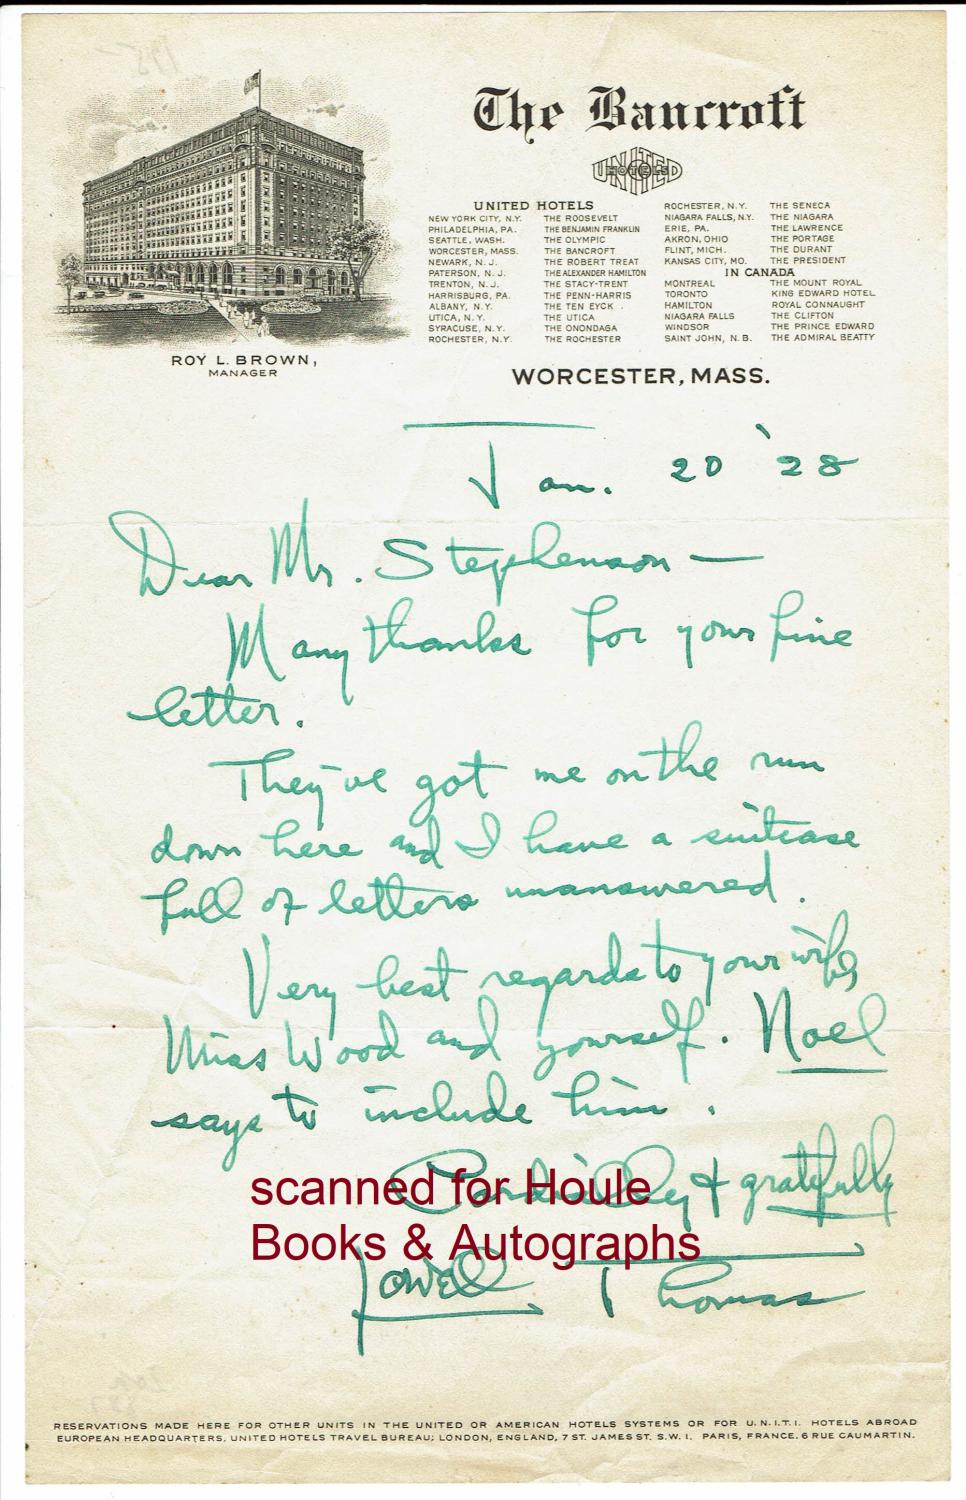 The Bancroft
UNITED HOTELS
UNITED HOTELS
NEW YORK CITY, N.Y. THE ROOSEVELT
PHILADELPHIA, PA. THE BENJAMIN FRANKLIN
SEATTLE, WASH. THE OLYMPIC
WORCESTER, MASS. THE BANCROFT
NEWARK, N. J. THE ROBERT TREAT
PATERSON, N. J. THE ALEXANDER HAMILTON
TRENTON, N. J. THE STACY-TRENT
HARRISBURG, PA. THE PENN-HARRIS
ALBANY, N. Y. THE TEN EYCK
UTICA, N. Y. THE UTICA
SYRACUSE, N. Y. THE ONONDAGA
ROCHESTER, N. Y. THE ROCHESTER
ROCHESTER, N. Y. THE SENECA
NIAGARA FALLS, N. Y. THE NIAGARA
ERIE, PA. THE LAWRENCE
AKRON, OHIO THE PORTAGE
FLINT, MICH. THE DURANT
KANSAS CITY, MO. THE PRESIDENT
IN CANADA
MONTREAL THE MOUNT ROYAL
TORONTO KING EDWARD HOTEL
HAMILTON ROYAL CONNAUGHT
NIAGARA FALLS THE CLIFTON
WINDSOR THE PRINCE EDWARD
SAINT JOHN, N. B. THE ADMIRAL BEATTY
ROY L. BROWN,
MANAGER
WORCESTER, MASS.
Jan. 20 '28
Dear Mr. Stephenson —
Many thanks for your fine
letter.
They've got me on the run
down here and I have a suitcase
full of letters unanswered.
Very best regards to your wife,
Miss Wood and yourself. Noel
says to include him.
Cordially & gratefully
Lowell Thomas
scanned for Houle
Books & Autographs
RESERVATIONS MADE HERE FOR OTHER UNITS IN THE UNITED OR AMERICAN HOTELS SYSTEMS OR FOR U.N.I.T.I. HOTELS ABROAD
EUROPEAN HEADQUARTERS, UNITED HOTELS TRAVEL BUREAU; LONDON, ENGLAND, 7 ST. JAMES ST. S.W. 1. PARIS, FRANCE. 6 RUE CAUMARTIN.